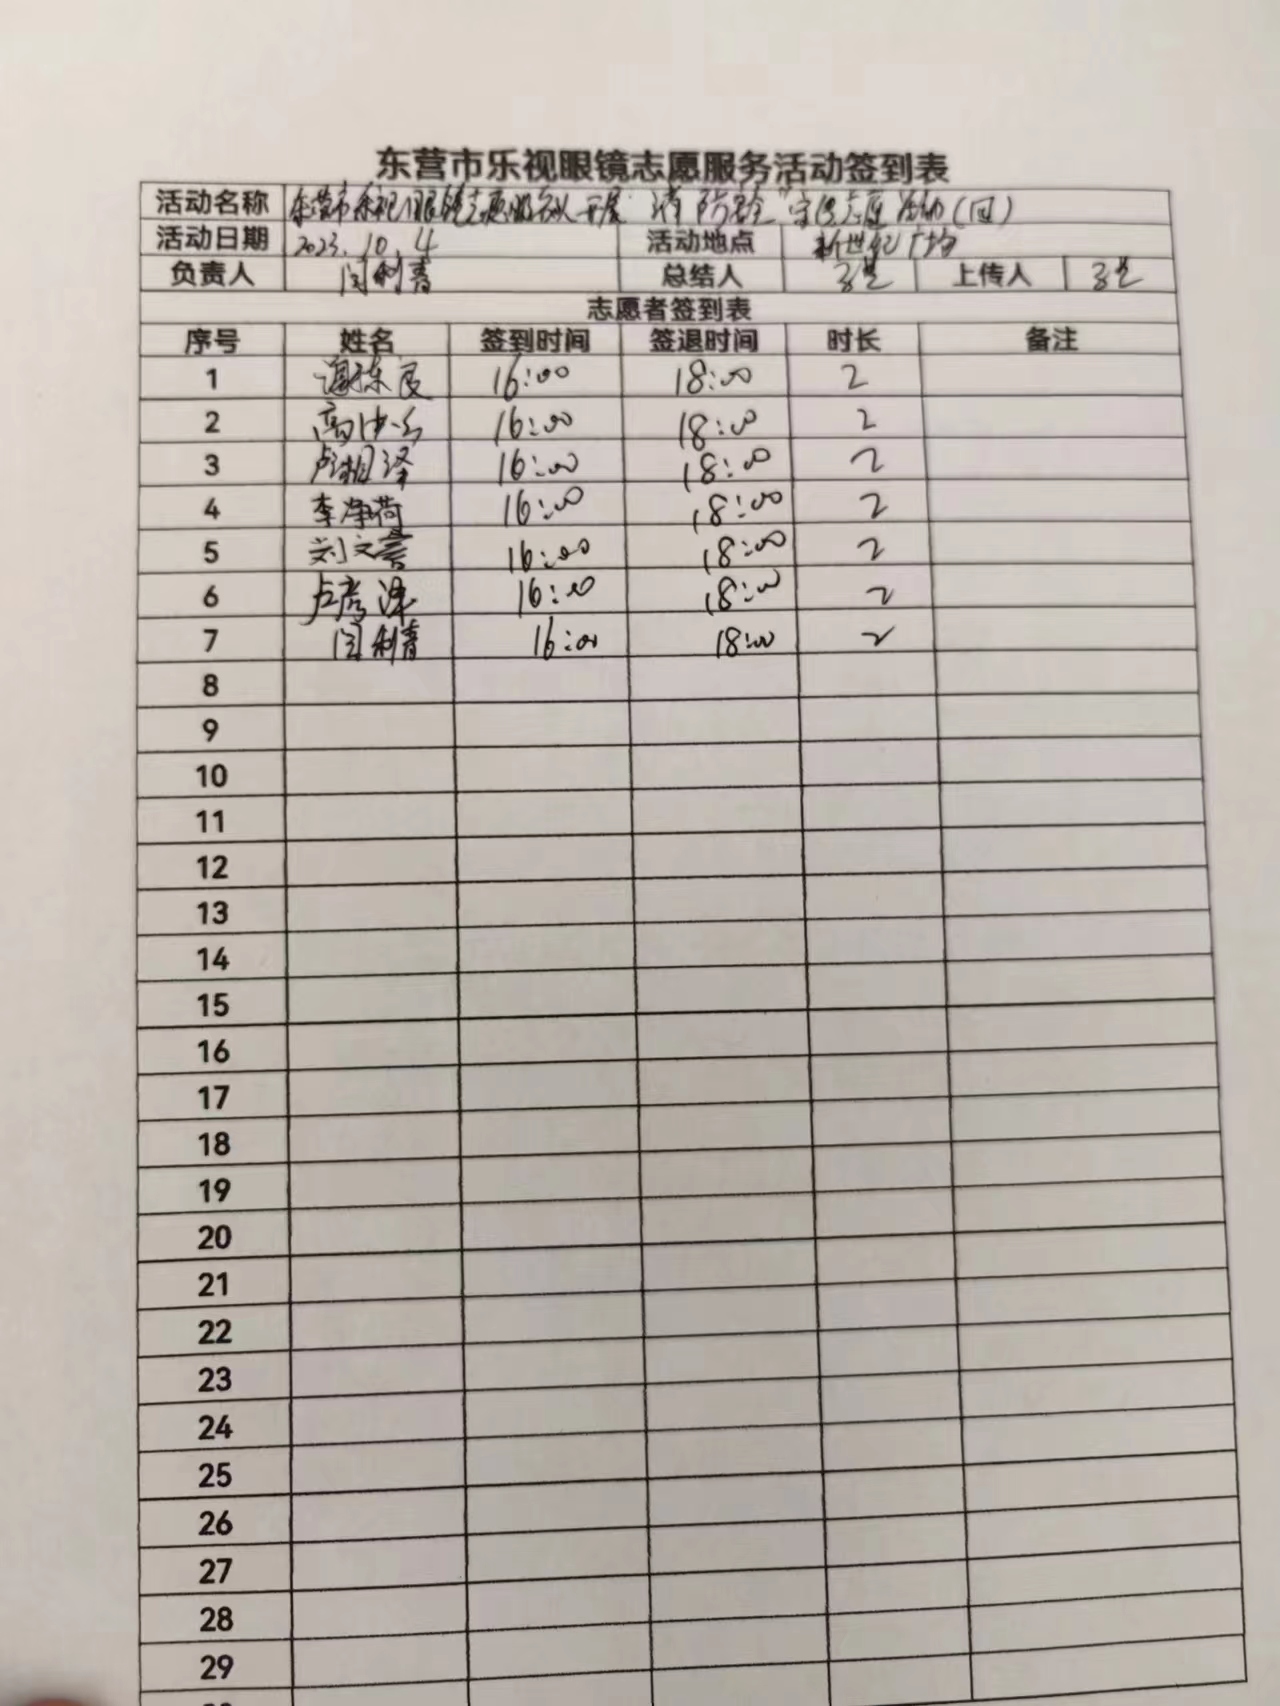 东营市乐视眼镜志愿服务活动签到表
活动名称 东营市乐视眼镜志愿服务队开展"消防安全"宣传志愿活动(四)
活动日期 2023.10.4 活动地点 新世纪广场
负责人 闫利青 总结人 上传人
志愿者签到表
序号 姓名 签到时间 签退时间 时长 备注
1 16:00 18:00 2
2 16:00 18:00 2
3 16:00 18:00 2
4 李净荷 16:00 18:00 2
5 16:00 18:00 2
6 卢彦泽 16:00 18:00 2
7 闫利青 16:00 18:00 2
8
9
10
11
12
13
14
15
16
17
18
19
20
21
22
23
24
25
26
27
28
29